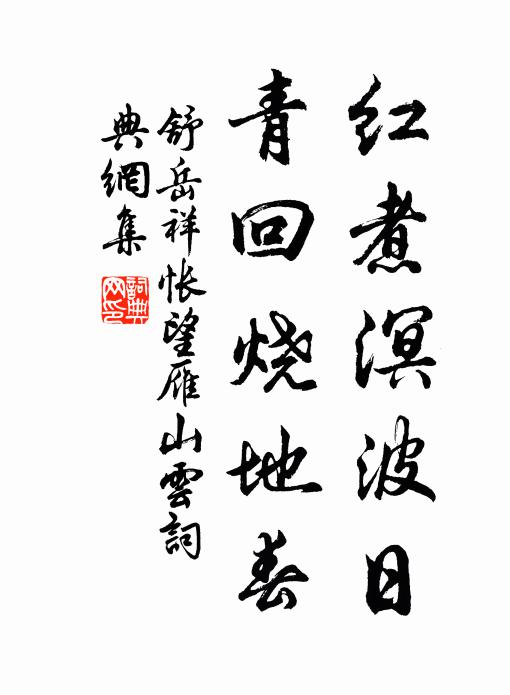 红煮溟波日
青回烧地春
舒岳祥怅望雁山雲詞
典網集
詞典
网印